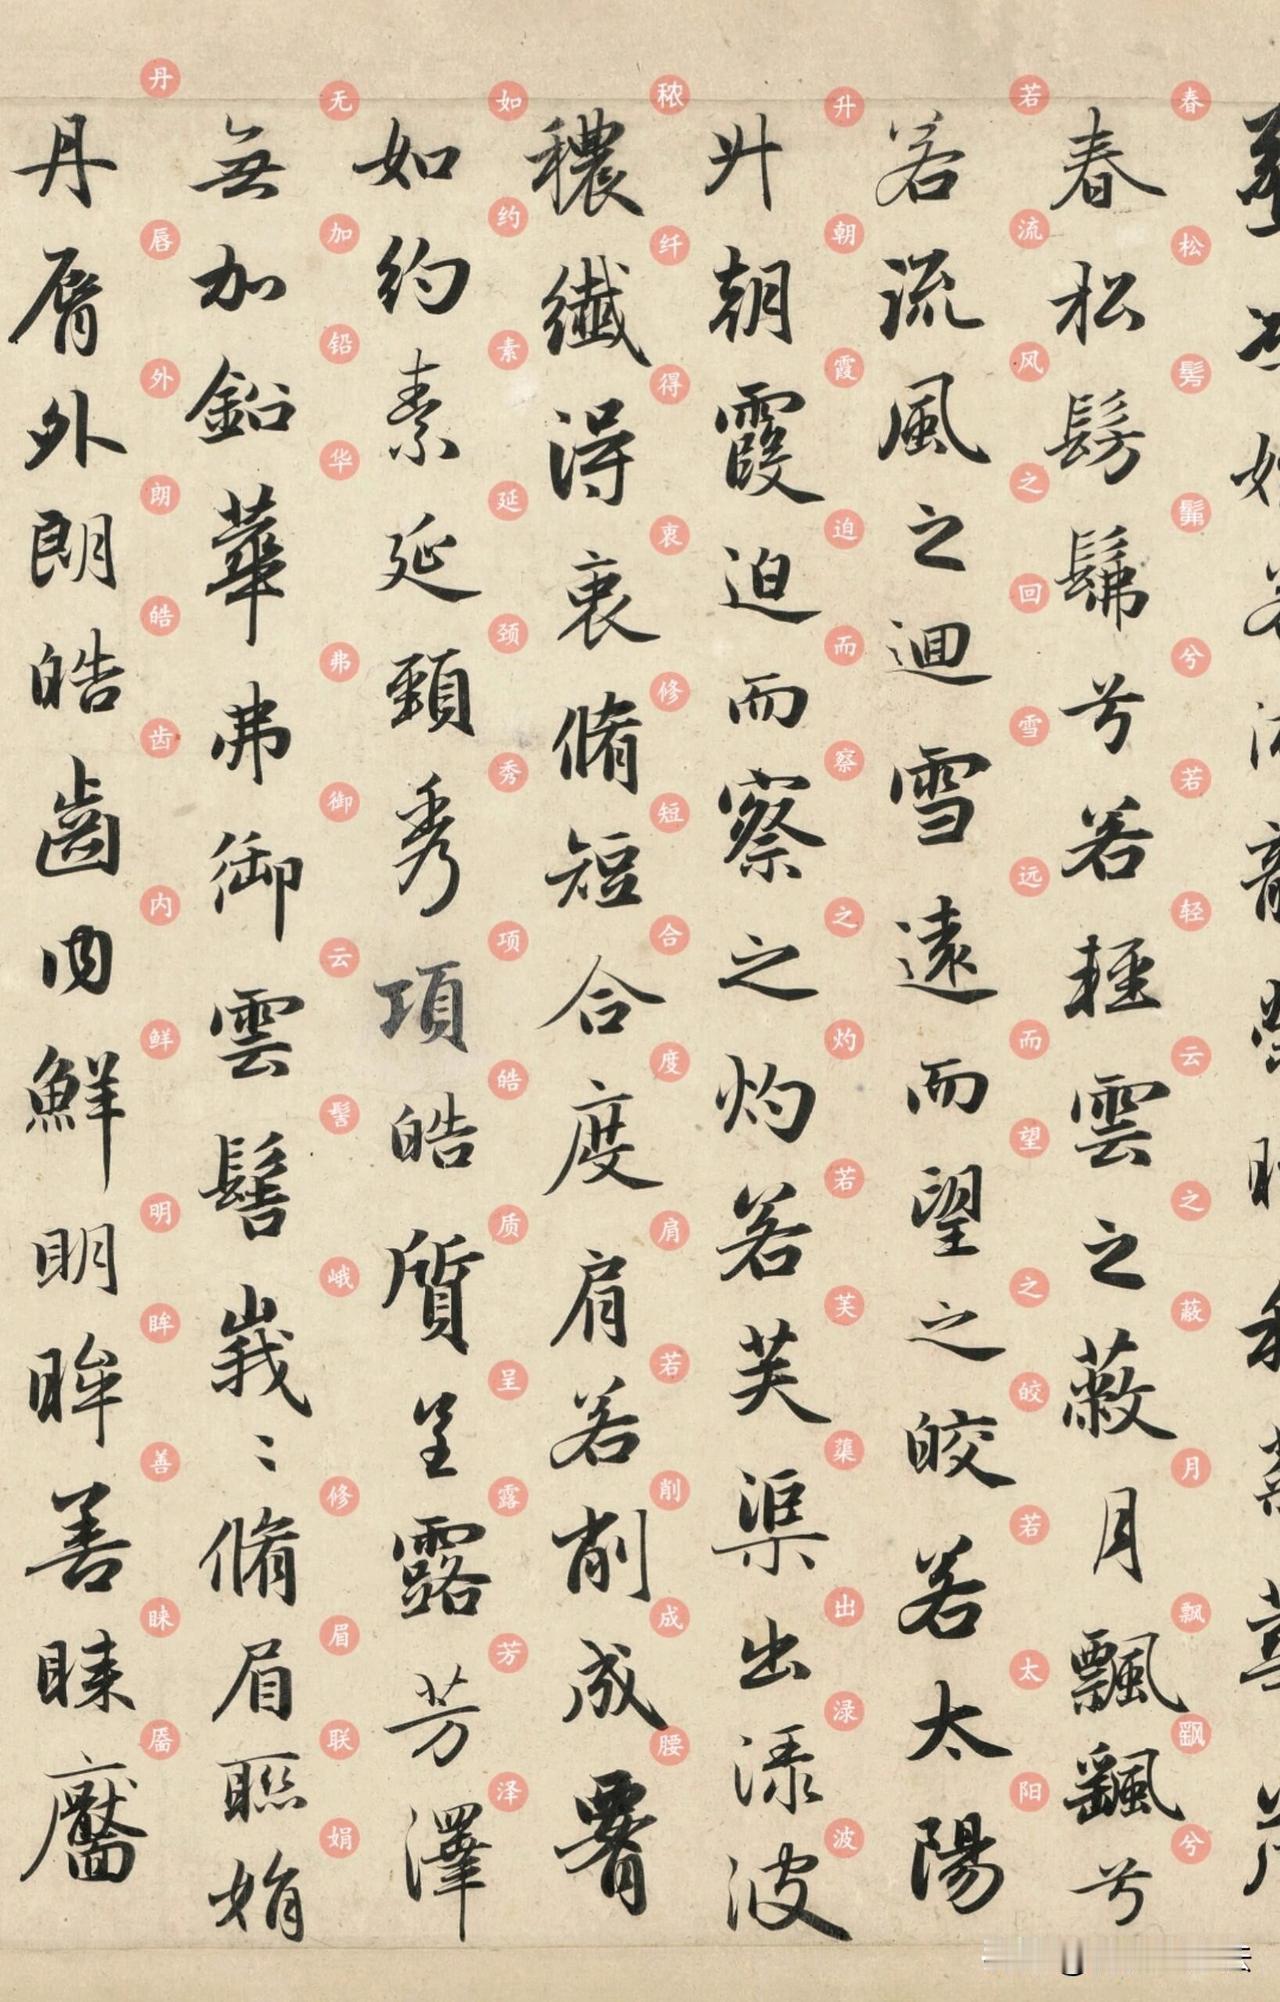 春松髣髴兮若輕雲之蔽月飄飖兮
春松髣髴兮若轻云之蔽月飘飖兮
若流風之迴雪遠而望之皎若太陽
若流风之回雪远而望之皎若太阳
升朝霞迫而察之灼若芙渠出渌波
升朝霞迫而察之灼若芙蕖出渌波
穠纖得衷脩短合度肩若削成腰
秾纤得衷修短合度肩若削成腰
如約素延頸秀項皓質呈露芳澤
如约素延颈秀项皓质呈露芳泽
無加鉛華弗御雲髻峩〻脩眉聯娟
无加铅华弗御云髻峨修眉联娟
丹脣外朗皓齒内鮮明眸善睞靨
丹唇外朗皓齿内鲜明眸善睐靥